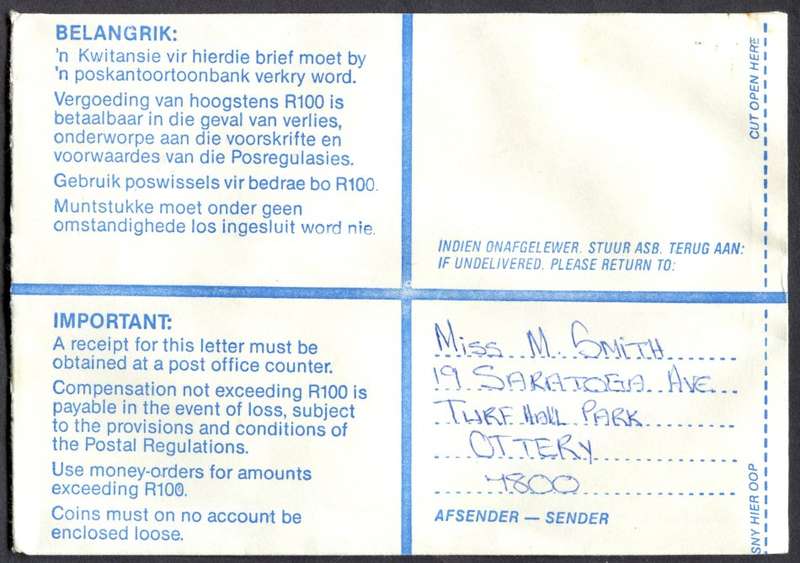 BELANGRIK:
'n Kwitansie vir hierdie brief moet by
'n poskantoortoonbank verkry word.
Vergoeding van hoogstens R100 is
betaalbaar in die geval van verlies,
onderworpe aan die voorskrifte en
voorwaardes van die Posregulasies.
Gebruik poswissels vir bedrae bo R100.
Muntstukke moet onder geen
omstandighede los ingesluit word nie.
CUT OPEN HERE
INDIEN ONAFGELEWER. STUUR ASB. TERUG AAN:
IF UNDELIVERED. PLEASE RETURN TO:
IMPORTANT:
A receipt for this letter must be
obtained at a post office counter.
Compensation not exceeding R100 is
payable in the event of loss, subject
to the provisions and conditions of
the Postal Regulations.
Use money-orders for amounts
exceeding R100.
Coins must on no account be
enclosed loose.
Miss M. SMITH
19 SARATOGA AVE
TURF HALL PARK
OTTERY
7800
AFSENDER — SENDER
SNY HIER OOP